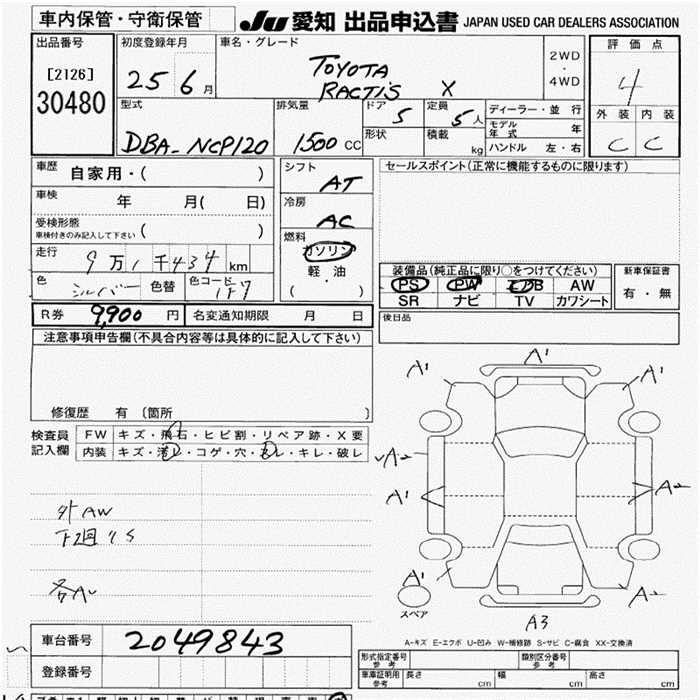 車内保管・守衛保管
JU 愛知 出品申込書 JAPAN USED CAR DEALERS ASSOCIATION
出品番号
[2126]
30480
初度登録年月
25 6 月
車名・グレード
TOYOTA
RACTIS X
2WD
・
4WD
評価点
4
外装 内装
C C
型式
DBA-NCP120
排気量
1500 CC
ドア
5
形状
定員
5 人
積載
kg
ディーラー・並行
モデル年式 年
ハンドル 左・右
車歴
自家用・( )
車検
年 月( 日)
受検形態
車検付きのみ記入して下さい ( )
走行
9万1千434 km
色
シルバー 色替 色コード 1F7
シフト
AT
冷房
AC
燃料
ガソリン
軽油
( ・ )
セールスポイント(正常に機能するものに限ります)
装備品(純正品に限り○をつけてください)
PS PW エアB AW
SR ナビ TV カワシート
新車保証書
有・無
R券 9,900 円 名変通知期限 月 日
後日品
注意事項申告欄(不具合内容等は具体的に記入して下さい)
修復歴 有 〔箇所 〕
検査員
記入欄
FW キズ・飛石・ヒビ割・リペア跡・X要
内装 キズ・汚レ・コゲ・穴・スレ・キレ・破レ
外AW
下廻りS
各A1
A1
A1 A1
A2
A1 A2
A1 A2
スペア
A3
A-キズ E-エクボ U-凹み W-補修跡 S-サビ C-腐食 XX-交換済
車台番号 2049843
登録番号
形式指定番号 参考 類別区分番号 参考
車庫証明用 参考 長さ cm 幅 cm 高さ cm